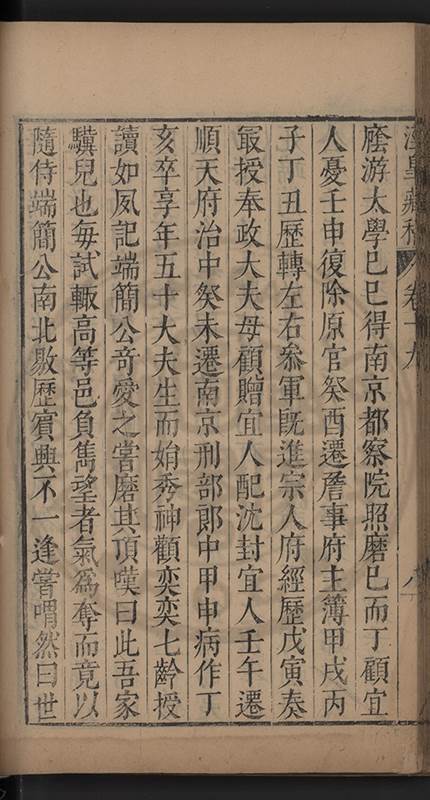 涇皐藏稿 卷十九 八
廕游太學己巳得南京都察院照磨已而丁顧宜
人憂壬申復除原官癸酉遷詹事府主簿甲戌丙
子丁丑歷轉左右叅軍旣進宗人府經歷戊寅奏
最授奉政大夫母顧贈宜人配沈封宜人壬午遷
順天府治中癸未遷南京刑部郎中甲申病作丁
亥卒享年五十大夫生而娟秀神觀奕奕七齡授
讀如夙記端簡公奇愛之嘗磨其頂嘆曰此吾家
驥兒也每試輙高等邑負雋望者氣爲奪而竟以
隨侍端簡公南北敭歷賓興不一逢嘗喟然曰世